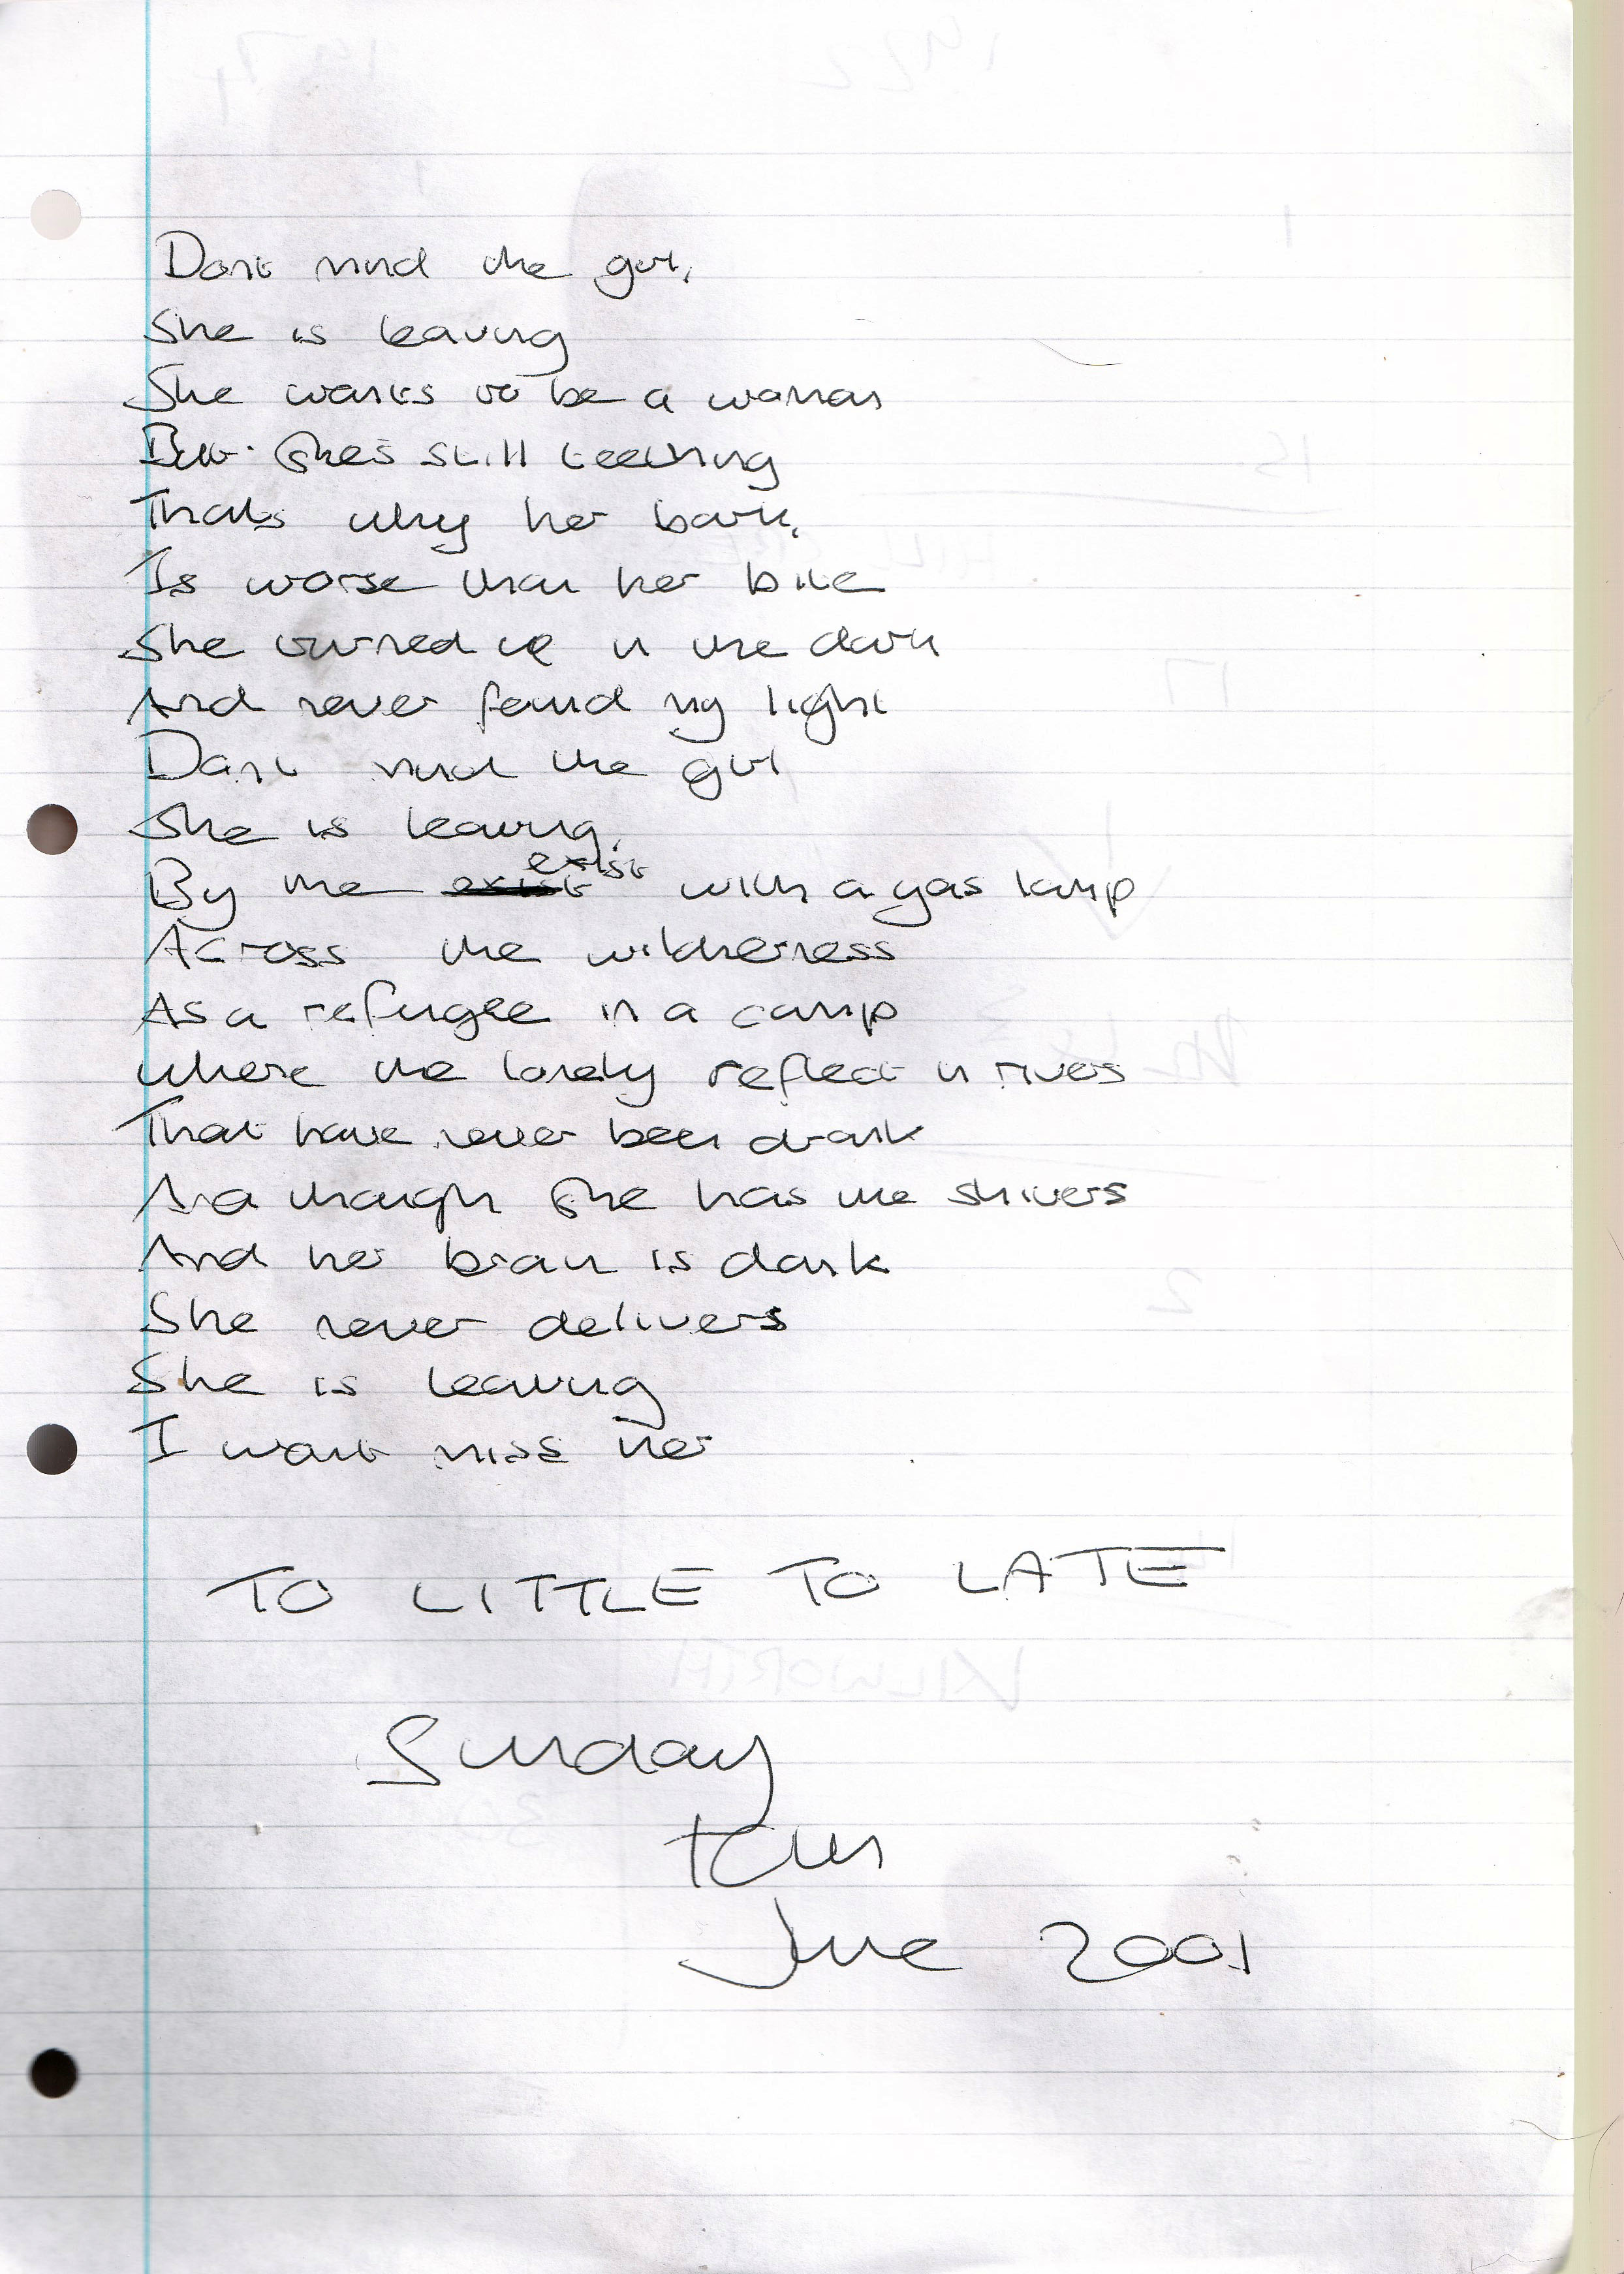 Dont mind the girl,
She is leaving
She wants to be a woman
But shes still teething
Thats why her bark,
Is worse than her bite
She turned up in the dark
And never found my light
Dont mind the girl
She is leaving,
By the exist exist with a gas lamp
Across the wilderness
As a refugee in a camp
Where the lonely reflect in rivers
That have never been drank
And though she has the shivers
And her brain is dark
She never delivers
She is leaving
I wont miss her
TO LITTLE TO LATE
Sunday
10th
June 2001